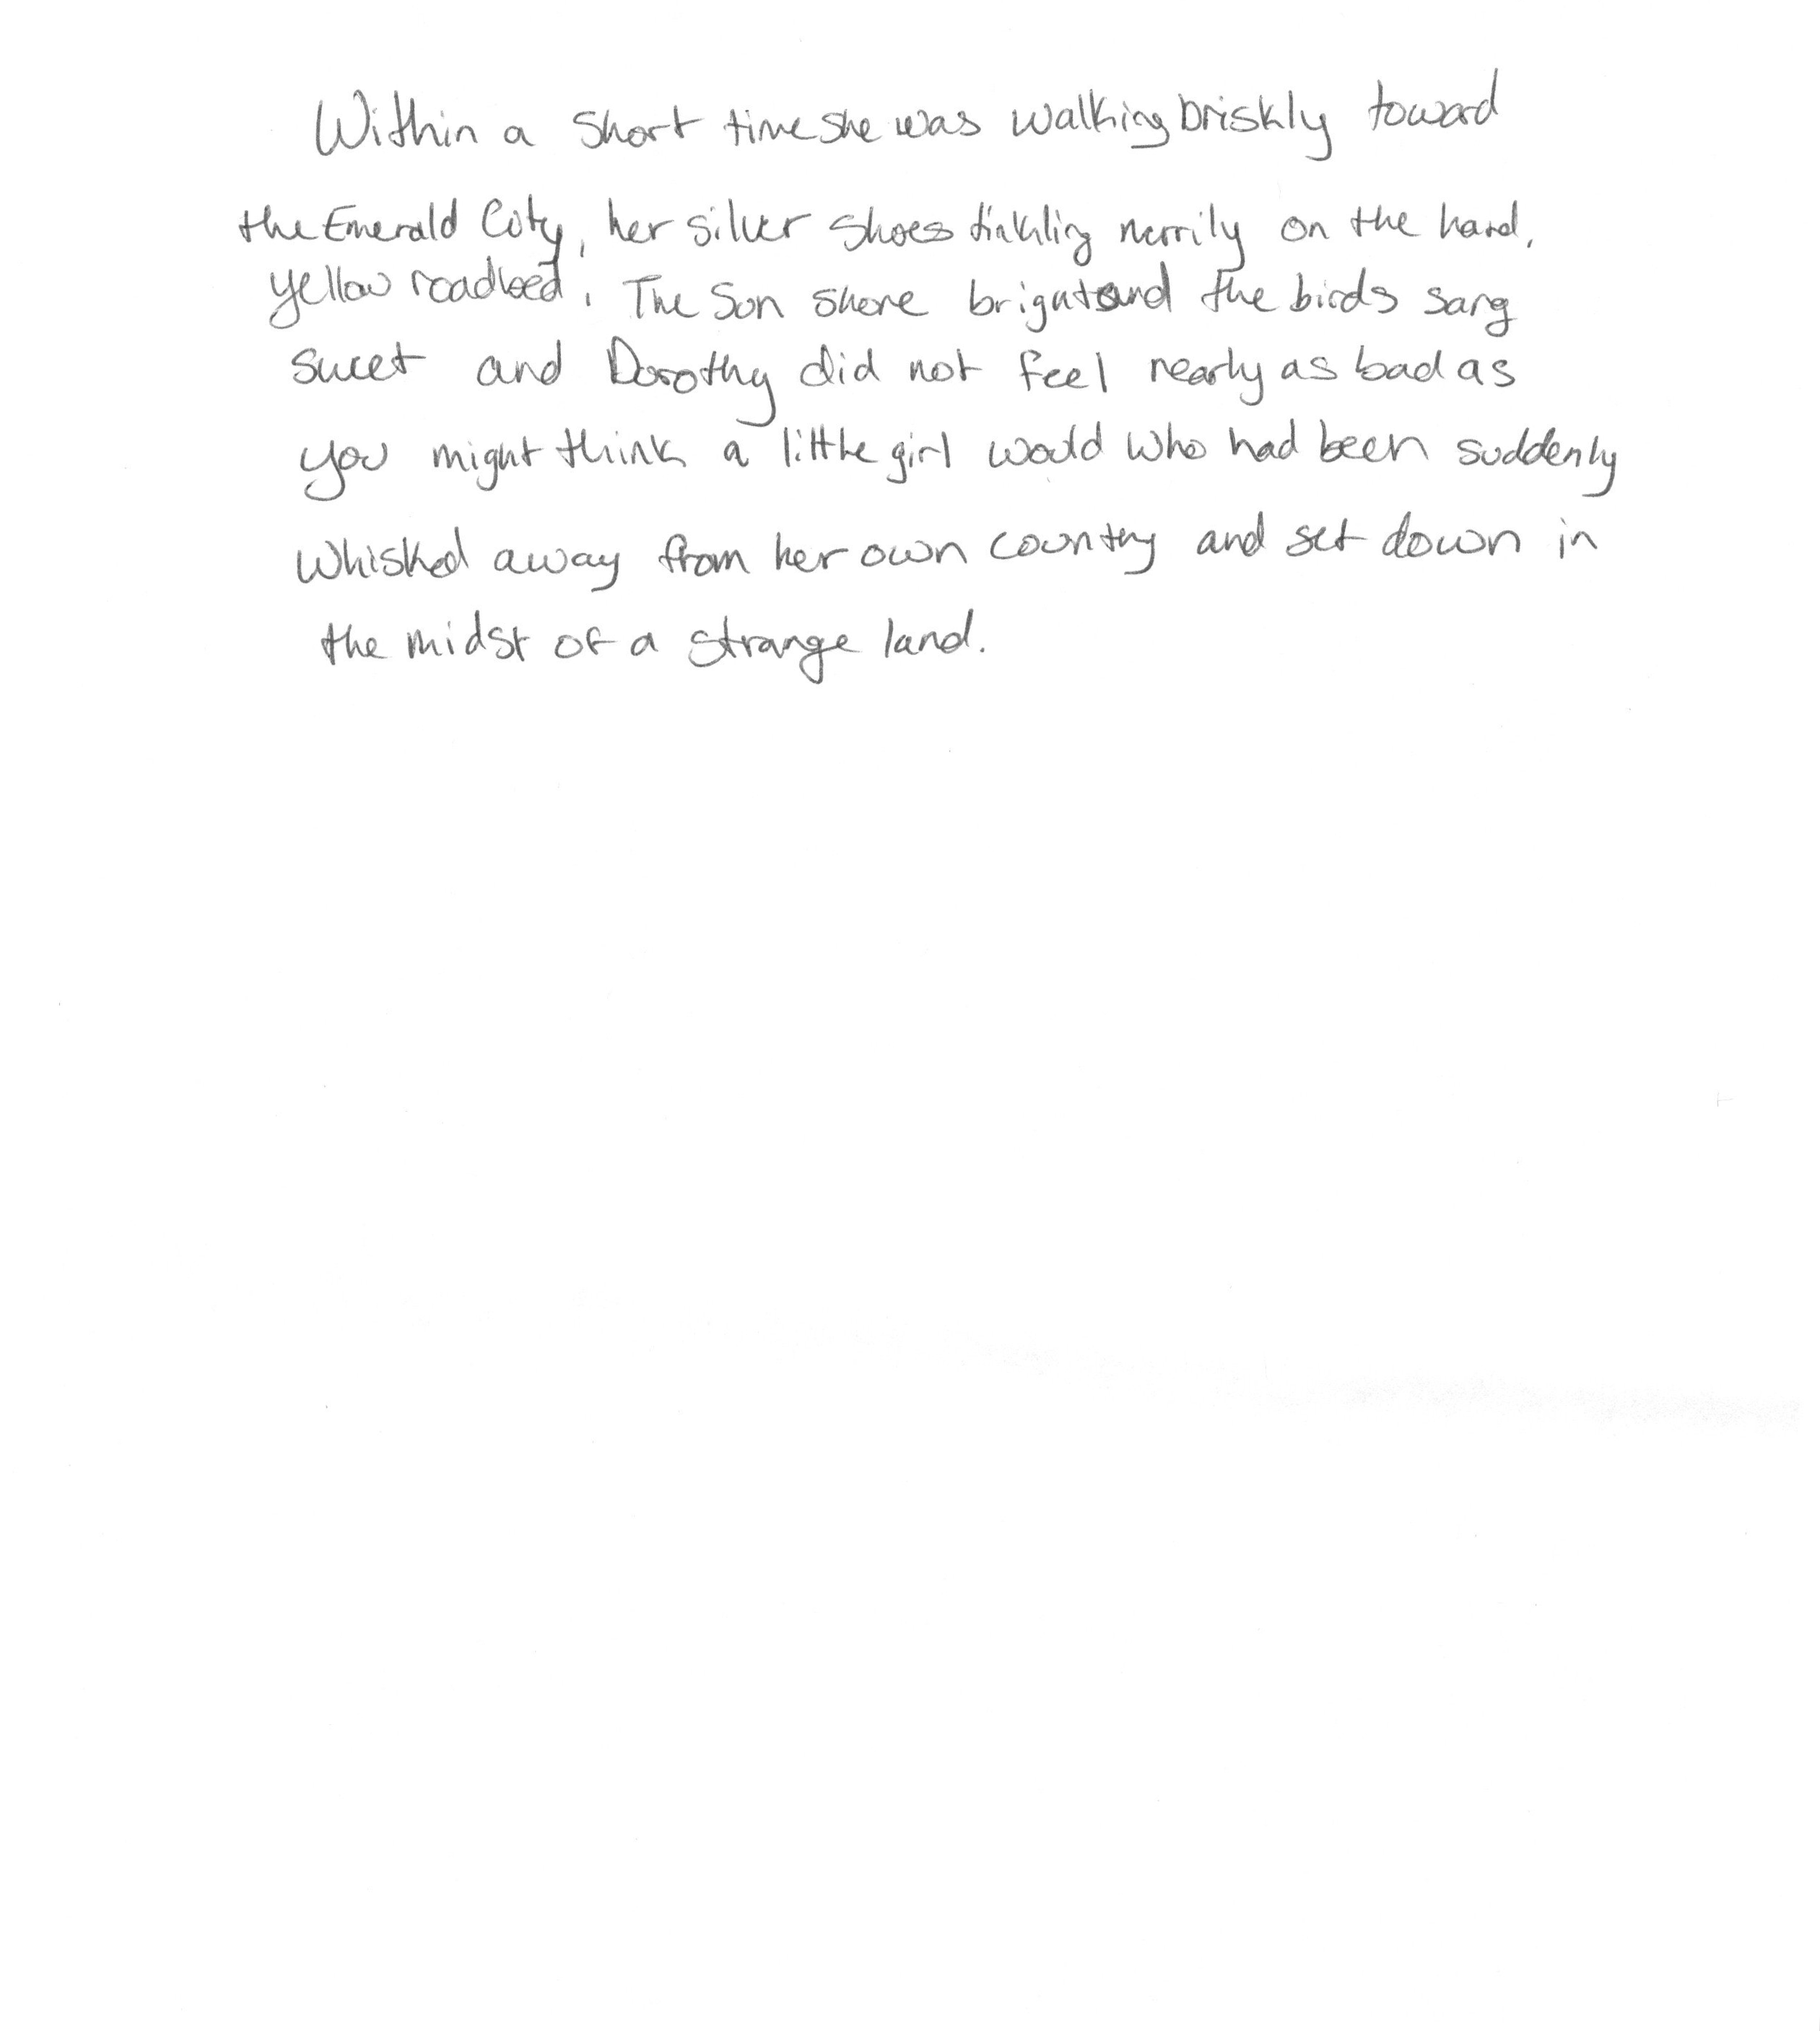 Within a short time she was walking briskly toward
the Emerald City, her silver shoes tinkling merrily on the hard,
yellow roadbed. The sun shone bright and the birds sang
sweet and Dorothy did not feel nearly as bad as
you might think a little girl would who had been suddenly
whisked away from her own country and set down in
the midst of a strange land.